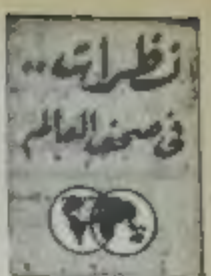 نظرات..
في صحف العالم